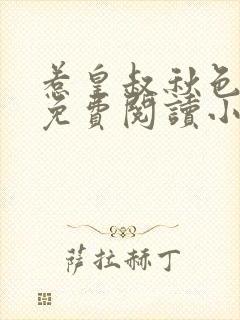 惹皇叔秋色
免費閱讀小
薩拉赫丁